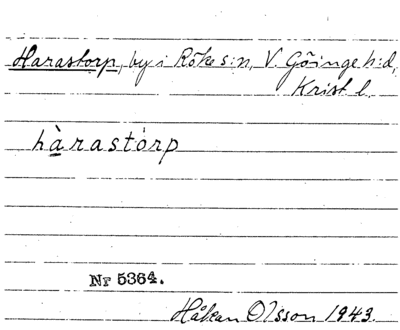 Harastorp, by i Röke s:n, V. Göinge h:d,
Krist l.
hàrastórp
Nr 5364.
Håkan Olsson 1943.